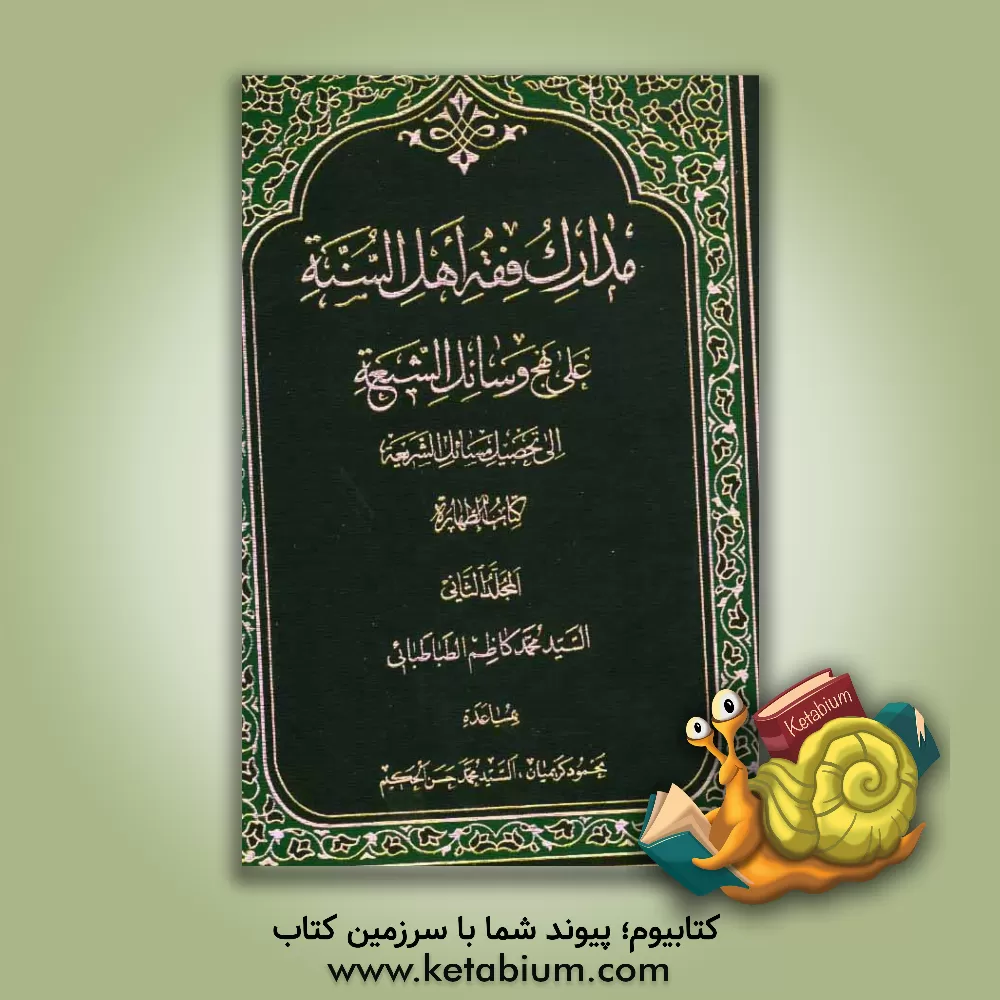 مدارك فقه أهل السنة
على نهج وسائل الشيعة
إلى تحصيل مسائل الشريعة
كتاب الطهارة
المجلد الثاني
السيد محمد كاظم الطباطبائي
بمساعدة
محمود كريميان، السيد محمد حسن الحكيم
Ketabium
کتابیوم؛ پیوند شما با سرزمین کتاب
www.ketabium.com